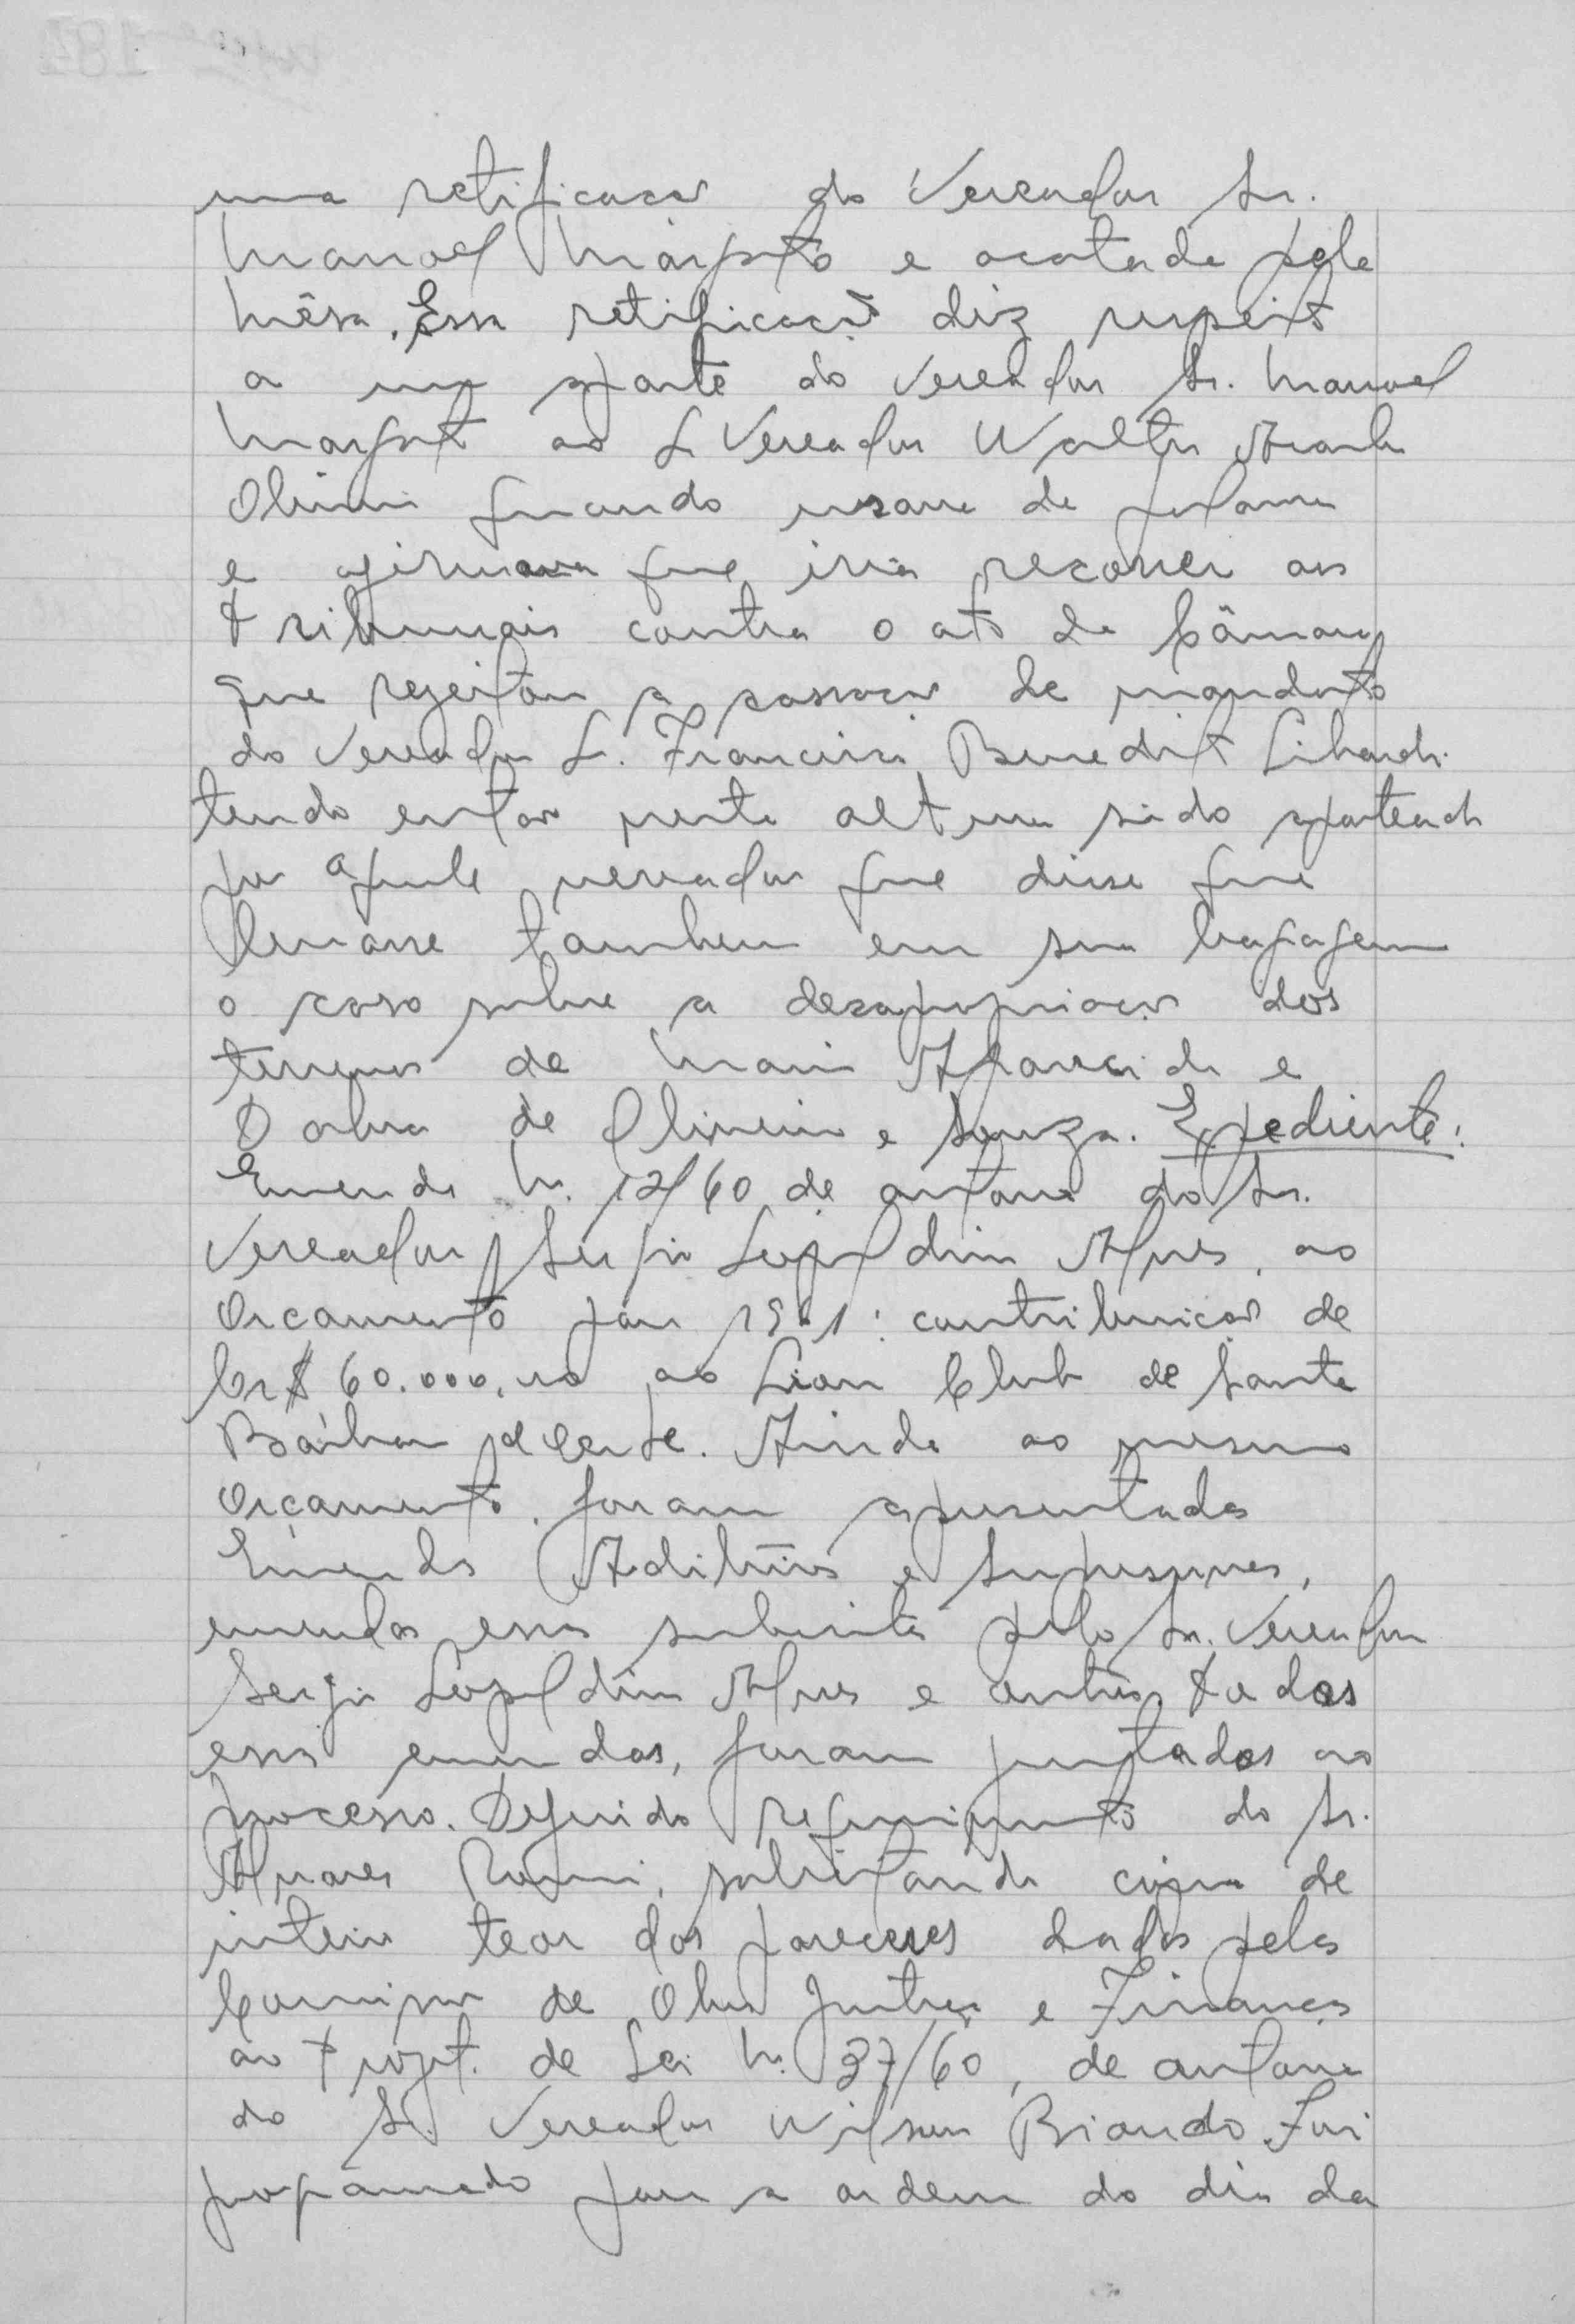 uma retificacão do Vereador Sr.
Manoel e acatada pela
Mêsa. Essa retificacão diz respeito
a um aparte do Vereador Sr. Manoel
ao Sr Vereador Walter
quando usava da palavra
e afirmava que iria recorrer aos
tribunais contra o ato da Câmara
que rejeitou a cassacão de mandato
do Vereador Sr. Francisco Benedito
tendo então nesta altura sido aparteado
por aquele vereador que disse que
levasse tambem em sua bagagem
o caso sobre a desapropriacão dos
terrenos de Maria Aparecida e
Dalva de Oliveira e Souza. Expediente:
Emenda N. 12/60 de autoria do Sr.
Vereador Sergio Leopoldino Alves, ao
Orcamento para 1961: contribuicão de
Cr$ 60.000,00 ao Lion Club de Santa
Bárbara d'Oeste. Ainda ao mesmo
Orçamento, foram apresentadas
Emendas Aditivas e Supressivas,
emendas essas subscritas pelo Sr. Vereador
Sergio Leopoldino Alves e outros, todas
essas emendas, foram juntadas ao
processo. Deferido requerimento do Sr.
Alvares Romi, solicitando cópia de
inteiro teor dos pareceres dados pelas
Comissões de Obras Justiça e Finanças
ao Projeto. de Lei N. 37/60, de autoria
do Sr. Vereador Wilson Briando. Foi
programado para a ordem do dia da